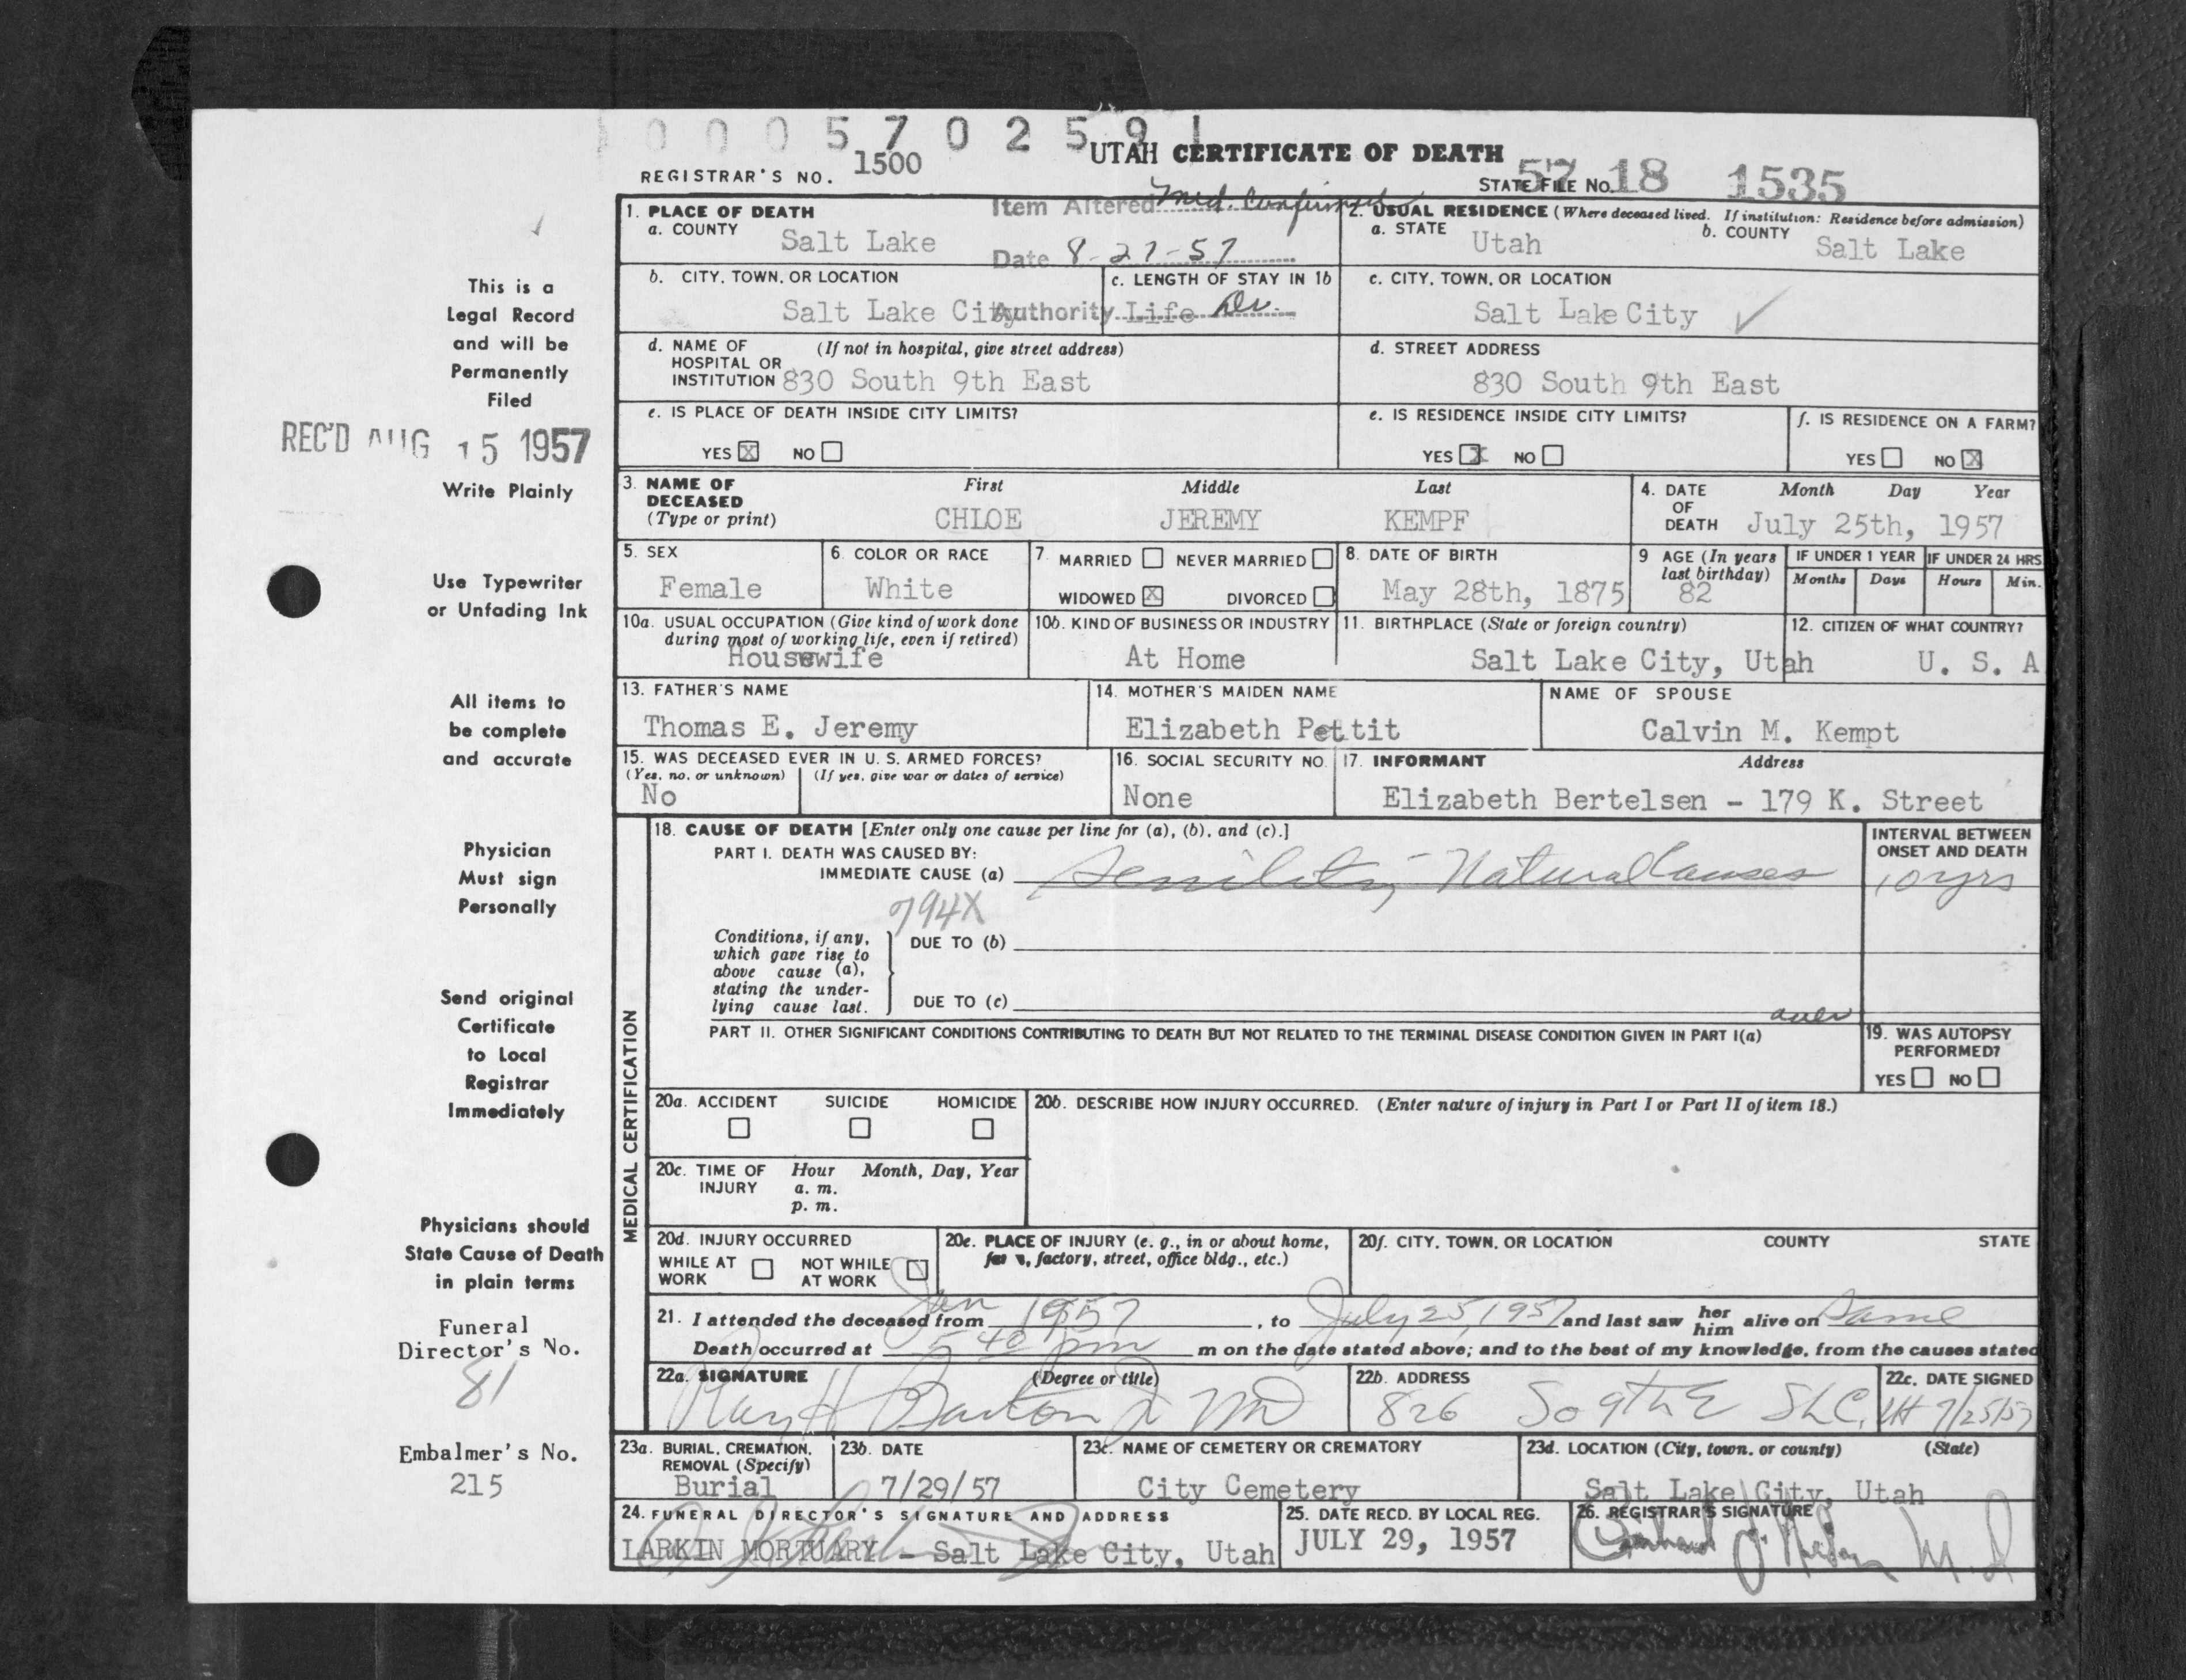 0 0 0 5 7 0 2 5 9 1
UTAH CERTIFICATE OF DEATH
REGISTRAR'S NO. 1500
STATE FILE NO. 57 18 1535
Item Altered Med. Confirmed
Date 8-27-57
Authority Dr.
1. PLACE OF DEATH
a. COUNTY Salt Lake
2. USUAL RESIDENCE (Where deceased lived. If institution: Residence before admission)
a. STATE Utah b. COUNTY Salt Lake
b. CITY, TOWN, OR LOCATION Salt Lake City
c. LENGTH OF STAY IN 1b Life
c. CITY, TOWN, OR LOCATION Salt Lake City
d. NAME OF HOSPITAL OR INSTITUTION (If not in hospital, give street address) 830 South 9th East
d. STREET ADDRESS 830 South 9th East
e. IS PLACE OF DEATH INSIDE CITY LIMITS?
YES X NO
e. IS RESIDENCE INSIDE CITY LIMITS?
YES X NO
f. IS RESIDENCE ON A FARM?
YES NO X
3. NAME OF DECEASED (Type or print)
First Middle Last
CHLOE JEREMY KEMPF
4. DATE OF DEATH
Month Day Year
July 25th, 1957
5. SEX Female
6. COLOR OR RACE White
7. MARRIED NEVER MARRIED
WIDOWED X DIVORCED
8. DATE OF BIRTH May 28th, 1875
9 AGE (In years last birthday) 82
IF UNDER 1 YEAR Months Days
IF UNDER 24 HRS Hours Min.
10a. USUAL OCCUPATION (Give kind of work done during most of working life, even if retired)
Housewife
10b. KIND OF BUSINESS OR INDUSTRY
At Home
11. BIRTHPLACE (State or foreign country)
Salt Lake City, Utah
12. CITIZEN OF WHAT COUNTRY?
U. S. A
13. FATHER'S NAME
Thomas E. Jeremy
14. MOTHER'S MAIDEN NAME
Elizabeth Pettit
NAME OF SPOUSE
Calvin M. Kempt
15. WAS DECEASED EVER IN U. S. ARMED FORCES?
(Yes, no, or unknown) (If yes, give war or dates of service)
No
16. SOCIAL SECURITY NO.
None
17. INFORMANT Address
Elizabeth Bertelsen - 179 K. Street
MEDICAL CERTIFICATION
18. CAUSE OF DEATH [Enter only one cause per line for (a), (b), and (c).]
PART I. DEATH WAS CAUSED BY:
IMMEDIATE CAUSE (a) Senility, Natural Causes
INTERVAL BETWEEN ONSET AND DEATH
10 yrs
794X
Conditions, if any, which gave rise to above cause (a), stating the underlying cause last.
DUE TO (b)
DUE TO (c)
over
PART II. OTHER SIGNIFICANT CONDITIONS CONTRIBUTING TO DEATH BUT NOT RELATED TO THE TERMINAL DISEASE CONDITION GIVEN IN PART I(a)
19. WAS AUTOPSY PERFORMED?
YES NO
20a. ACCIDENT SUICIDE HOMICIDE
20b. DESCRIBE HOW INJURY OCCURRED. (Enter nature of injury in Part I or Part II of item 18.)
20c. TIME OF INJURY
Hour Month, Day, Year
a. m.
p. m.
20d. INJURY OCCURRED
WHILE AT WORK NOT WHILE AT WORK
20e. PLACE OF INJURY (e. g., in or about home, farm, factory, street, office bldg., etc.)
20f. CITY, TOWN, OR LOCATION COUNTY STATE
21. I attended the deceased from Jan 1957, to July 25, 1957 and last saw her him alive on Same
Death occurred at 5 40 pm m on the date stated above; and to the best of my knowledge, from the causes stated
22a. SIGNATURE (Degree or title)
Ray H Barton Jr MD
22b. ADDRESS
826 So 9th E SLC, Ut
22c. DATE SIGNED
7/25/57
23a. BURIAL, CREMATION, REMOVAL (Specify)
Burial
23b. DATE
7/29/57
23c. NAME OF CEMETERY OR CREMATORY
City Cemetery
23d. LOCATION (City, town, or county) (State)
Salt Lake City, Utah
24. FUNERAL DIRECTOR'S SIGNATURE AND ADDRESS
LARKIN MORTUARY - Salt Lake City, Utah
25. DATE RECD. BY LOCAL REG.
JULY 29, 1957
26. REGISTRAR'S SIGNATURE
M.D
This is a
Legal Record
and will be
Permanently
Filed
REC'D AUG 15 1957
Write Plainly
Use Typewriter
or Unfading Ink
All items to
be complete
and accurate
Physician
Must sign
Personally
Send original
Certificate
to Local
Registrar
Immediately
Physicians should
State Cause of Death
in plain terms
Funeral
Director's No.
81
Embalmer's No.
215